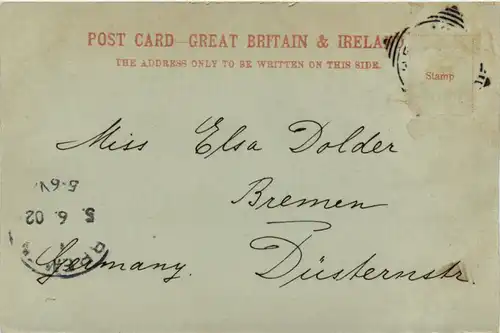 POST CARD—GREAT BRITAIN & IRELA
THE ADDRESS ONLY TO BE WRITTEN ON THIS SIDE.
Stamp
Miss Elsa Dolder
Bremen
Germany. Düsternstr.
5-6V
5. 6. 02